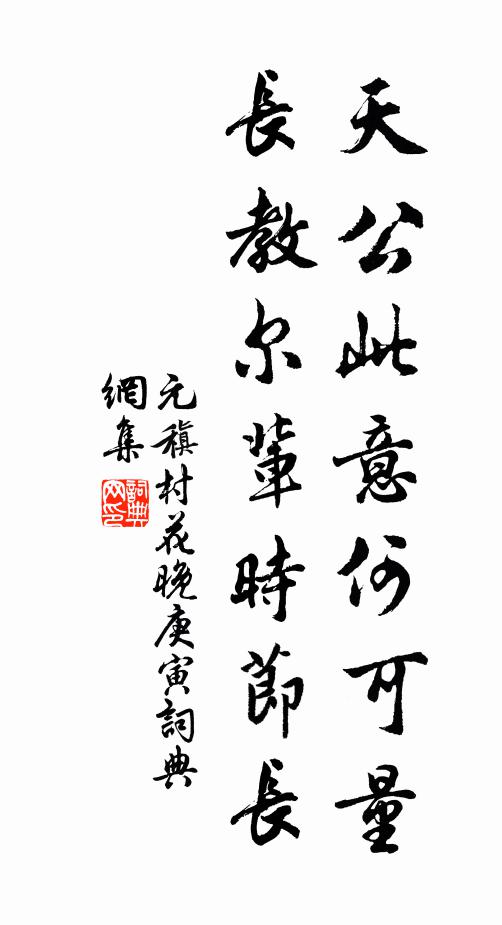 天公此意何可量
長教尔輩時節長
元稹村花晚庚寅詞典
網集
詞典網印